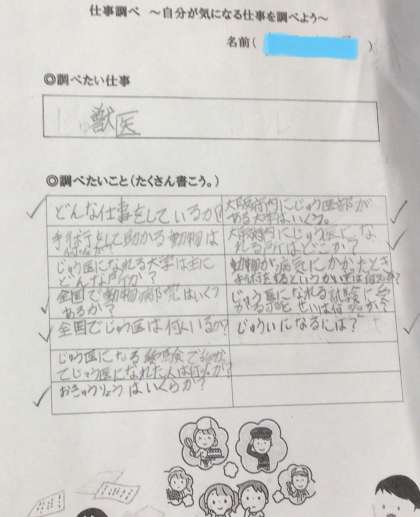 仕事調べ ～自分が気になる仕事を調べよう～
名前( )
◎調べたい仕事
獣医
◎調べたいこと(たくさん書こう。)
どんな仕事をしているか?
大阪府内にじゅう医学部が
ある大学はいくつ。
して助かる動物は
大阪府内にじゅう医にな
れる所はどこか?
じゅう医になれる大学は主に
どんな所か?
動物が病気にかかったとき
全国で動物病院はいくつ
あるか?
じゅう医になれる試験に合
かくする
全国でじゅう医は何人いるか?
じゅういになるには?
じゅう医になる試験で
てじゅう医になれた人は何人か?
おきゅうりょうはいくらか?